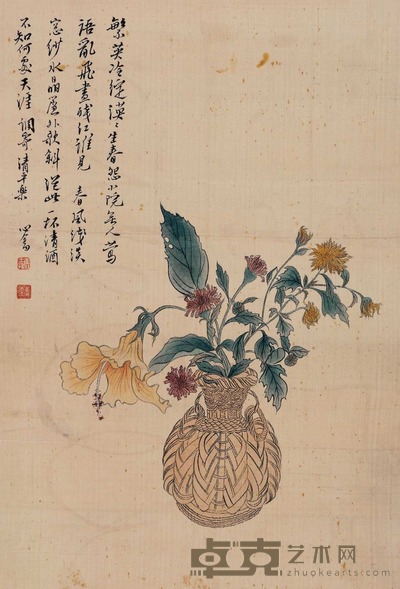 繁英冷淀漠〻生春怨小院無人鶯
語亂飛盡殘紅誰見 春風淺淡
窓紗水晶簾外歌斜從此一杯清酒
不知何處天涯 調寄清平樂
心畬
卓克艺术网
zhuokearts.com